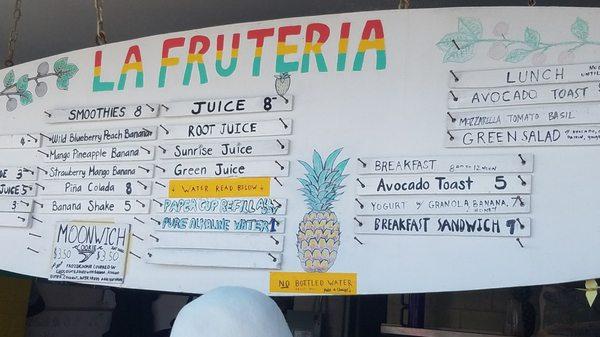 LA FRUTERIA
SMOOTHIES 8
Wild Blueberry Peach Banana
Mango Pineapple Banana
Strawberry Mango Banana
Piña Colada 8
Banana Shake 5
MOONWICH
COOKIE
$3.50 $3.50
JUICE 8
ROOT JUICE
Sunrise Juice
Green Juice
WATER READ BELOW
PAPER CUP REFILLABLE
PURE ALKALINE WATER 1
NO BOTTLED WATER
LUNCH
AVOCADO TOAST
MOZZARELLA TOMATO BASIL
GREEN SALAD
BREAKFAST
Avocado Toast 5
YOGURT w/ GRANOLA, BANANA, HONEY 7
BREAKFAST SANDWICH 7